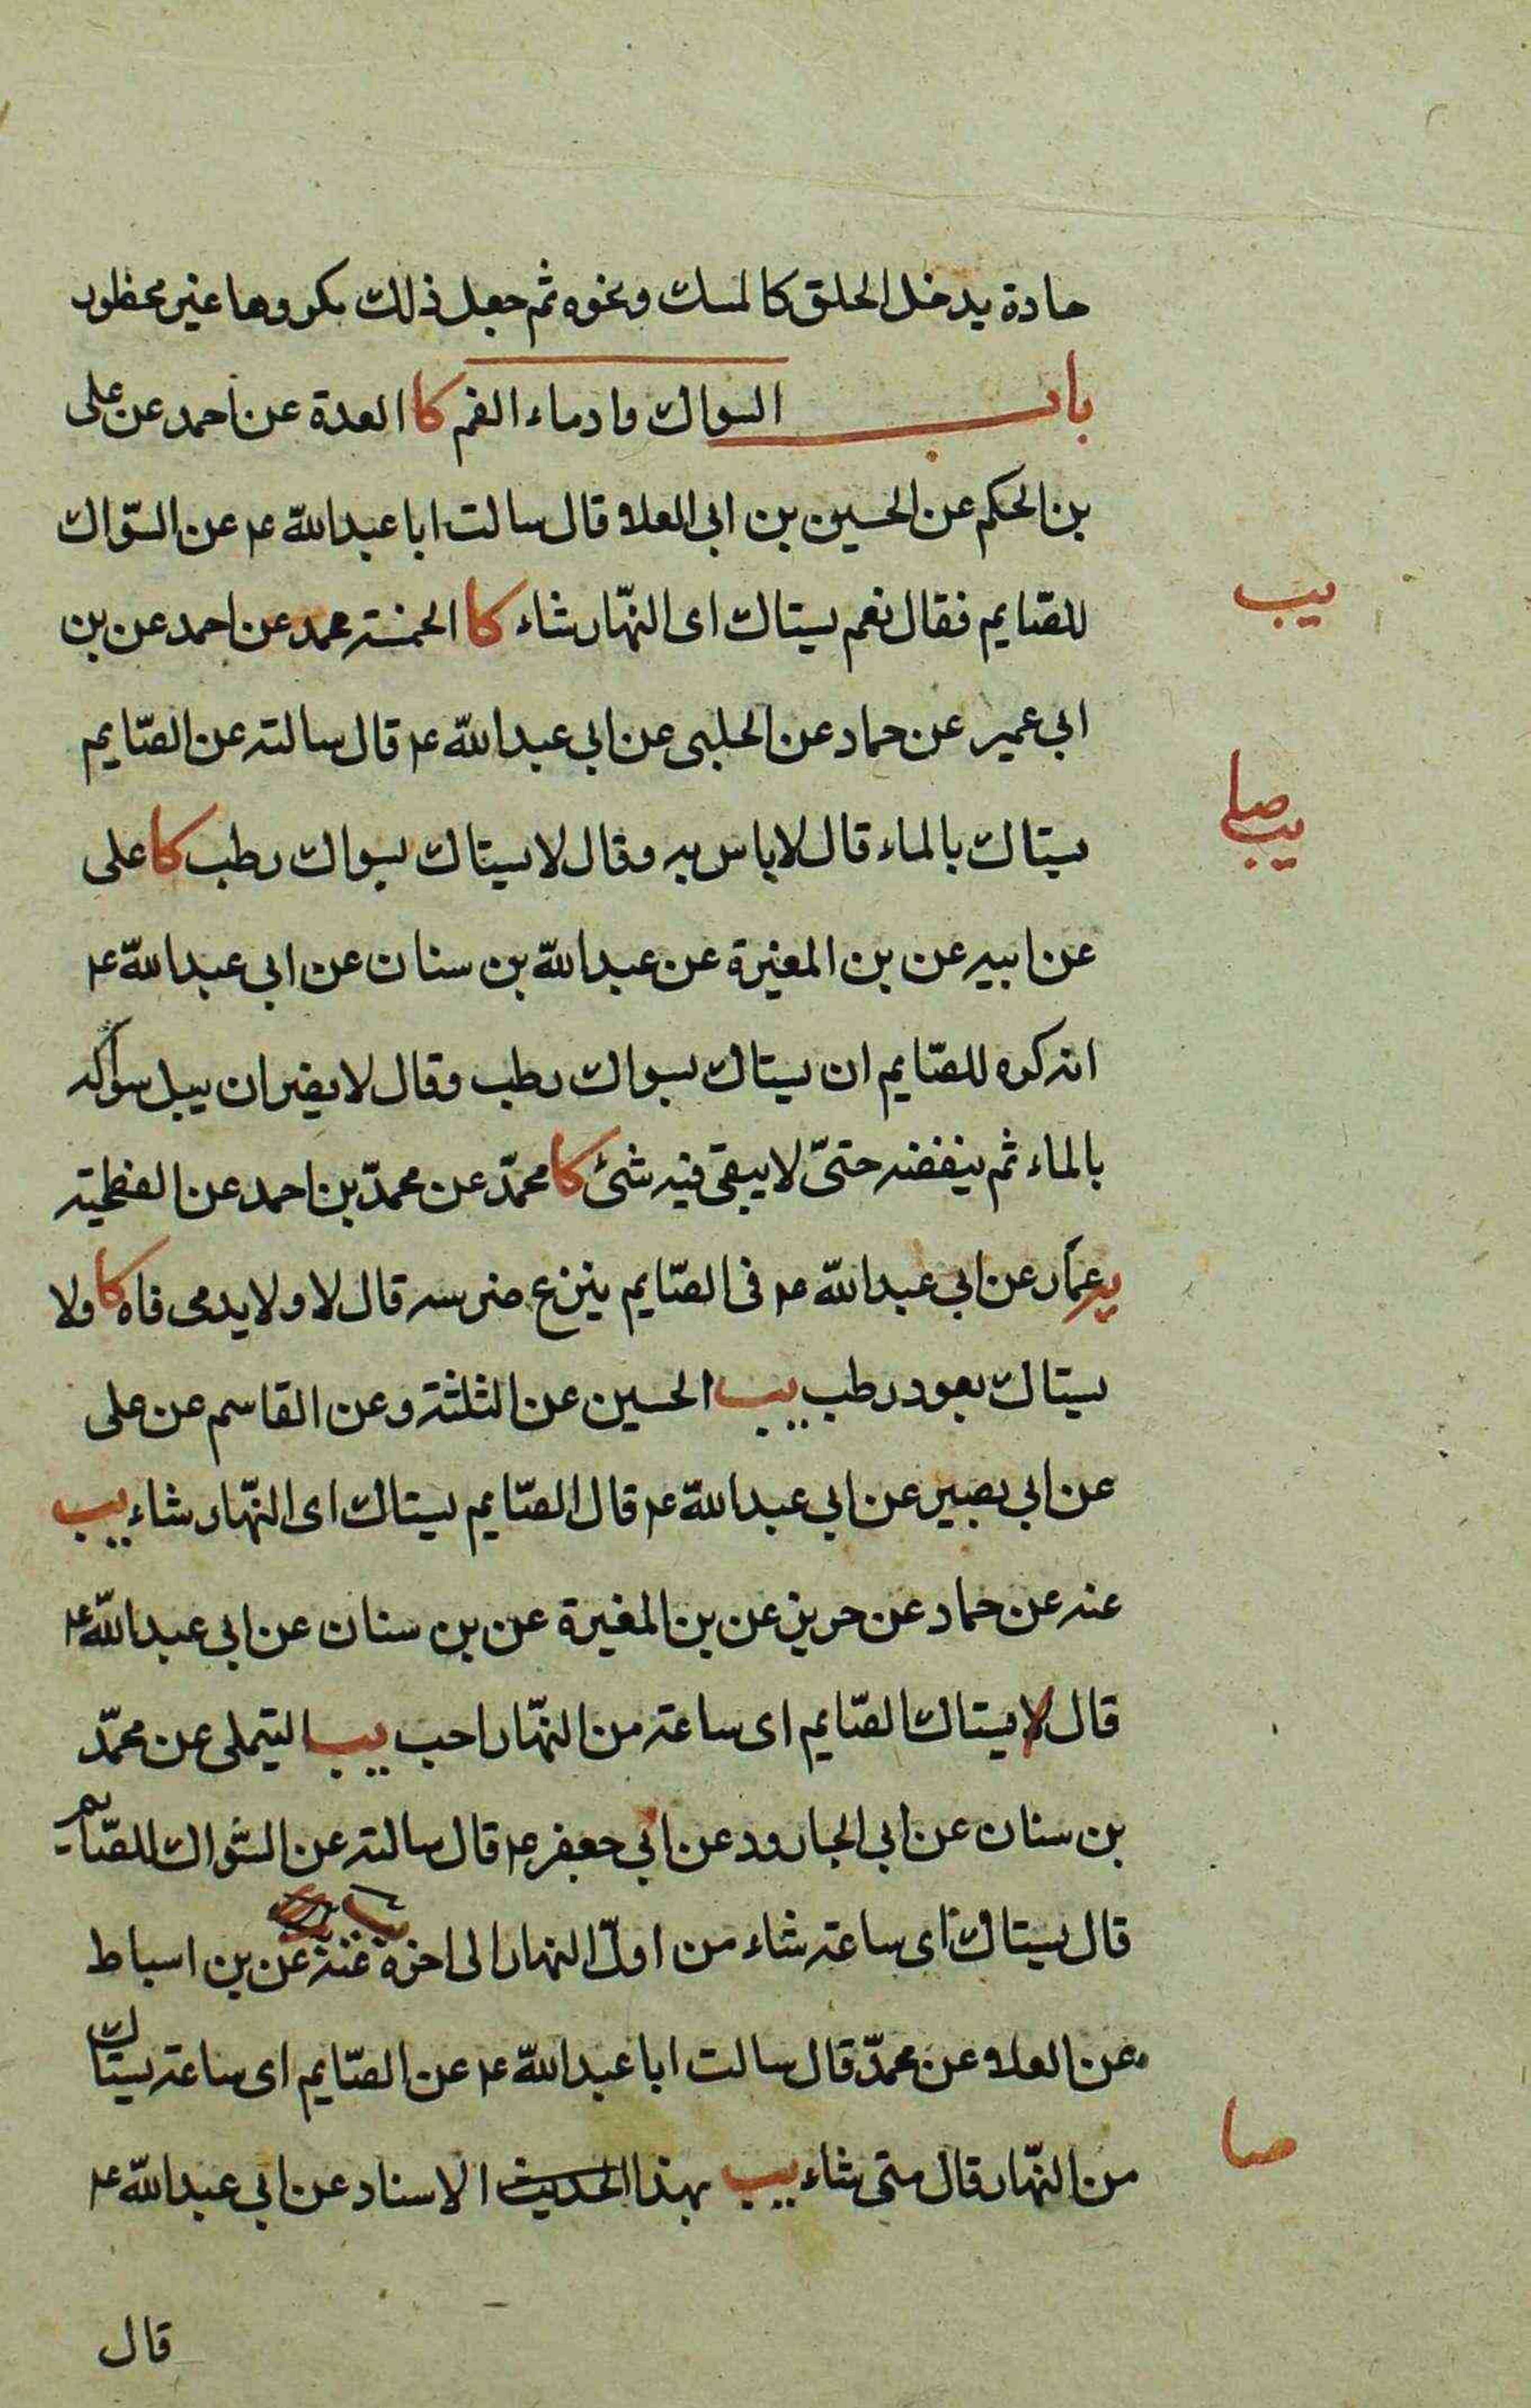 حادة يدخل الحلق كالمسك ونحوه ثم جعل ذلك مكروها غير محظور
باب السواك وادماء الفم كا العدة عن احمد عن على
بن الحكم عن الحسين بن ابى العلاء قال سالت ابا عبدالله ع عن السّواك
يب
للصّايم فقال نعم يستاك اى النّهار شاء كا الخمسة محمد عن احمد عن بن
ابي عمير عن حماد عن الحلبي عن ابي عبدالله ع قال سالته عن الصّايم
صلى
يب
يستاك بالماء قال لا باس به وقال لا يستاك بسواك رطب كا على
عن ابيه عن بن المغيرة عن عبدالله بن سنان عن ابى عبدالله ع
انه كره للصّايم ان يستاك بسواك رطب وقال لا يضر ان يبل سواكه
بالماء ثم ينفضه حتىّ لا يبقى فيه شئ كا محمّد عن محمّد بن احمد عن الفطحية
يب عمّار عن ابي عبدالله ع فى الصّايم ينزع ضرسه قال لا ولا يدمى فاه كا ولا
يستاك بعود رطب يب الحسين عن الثلثة وعن القاسم عن على
عن ابي بصير عن ابي عبدالله ع قال الصّايم يستاك اى النّهار شاء يب
عنه عن حماد عن حريز عن بن المغيرة عن بن سنان عن ابي عبدالله ع
قال لا يستاك الصّايم اى ساعة من النّهار احب يب التيملى عن محمّد
بن سنان عن ابي الجارود عن ابي جعفر ع قال سالته عن السّواك للصّايم
قال يستاك اى ساعة شاء من اوّل النهار الى اخره يب عنه عن بن اسباط
عن العلاء عن محمّد قال سالت ابا عبدالله ع عن الصّايم اى ساعة يستاك
صا
من النّهار قال متى شاء يب بهذا الحديث الاسناد عن ابي عبدالله ع
قال